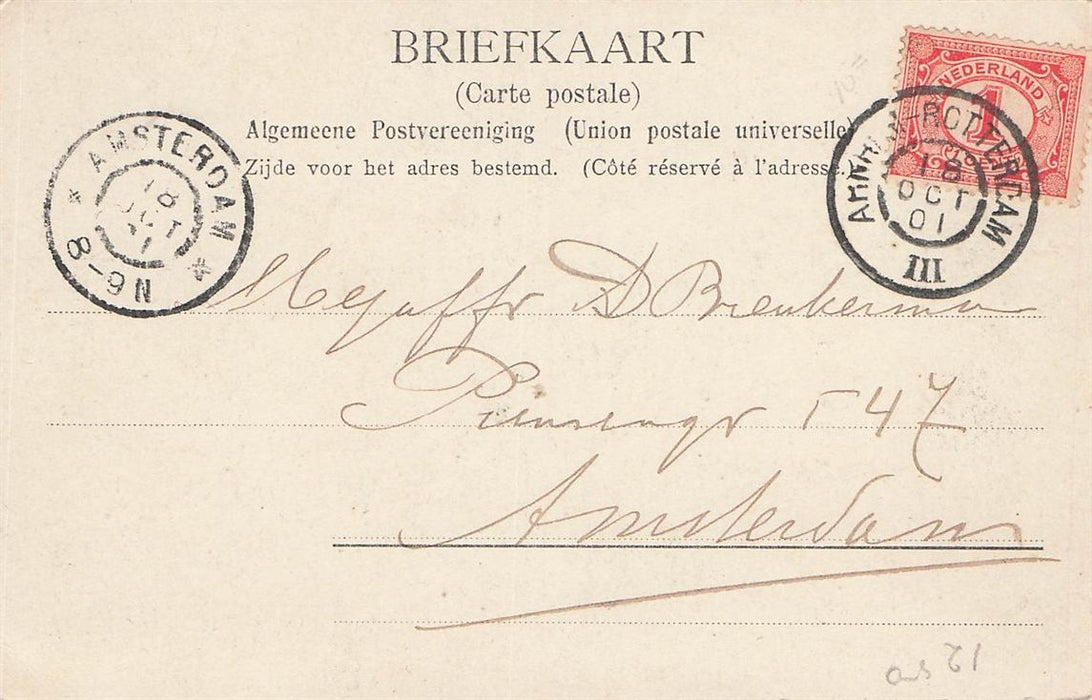 BRIEFKAART
(Carte postale)
Algemeene Postvereeniging (Union postale universelle)
Zijde voor het adres bestemd. (Côté réservé à l'adresse.)
NEDERLAND
1
AMSTERDAM
18
OCT
1
8-9N
ARNHEM-ROTTERDAM
18
OCT
01
III
Mejuffr D Breukerman
Prinsengr 547
Amsterdam
21